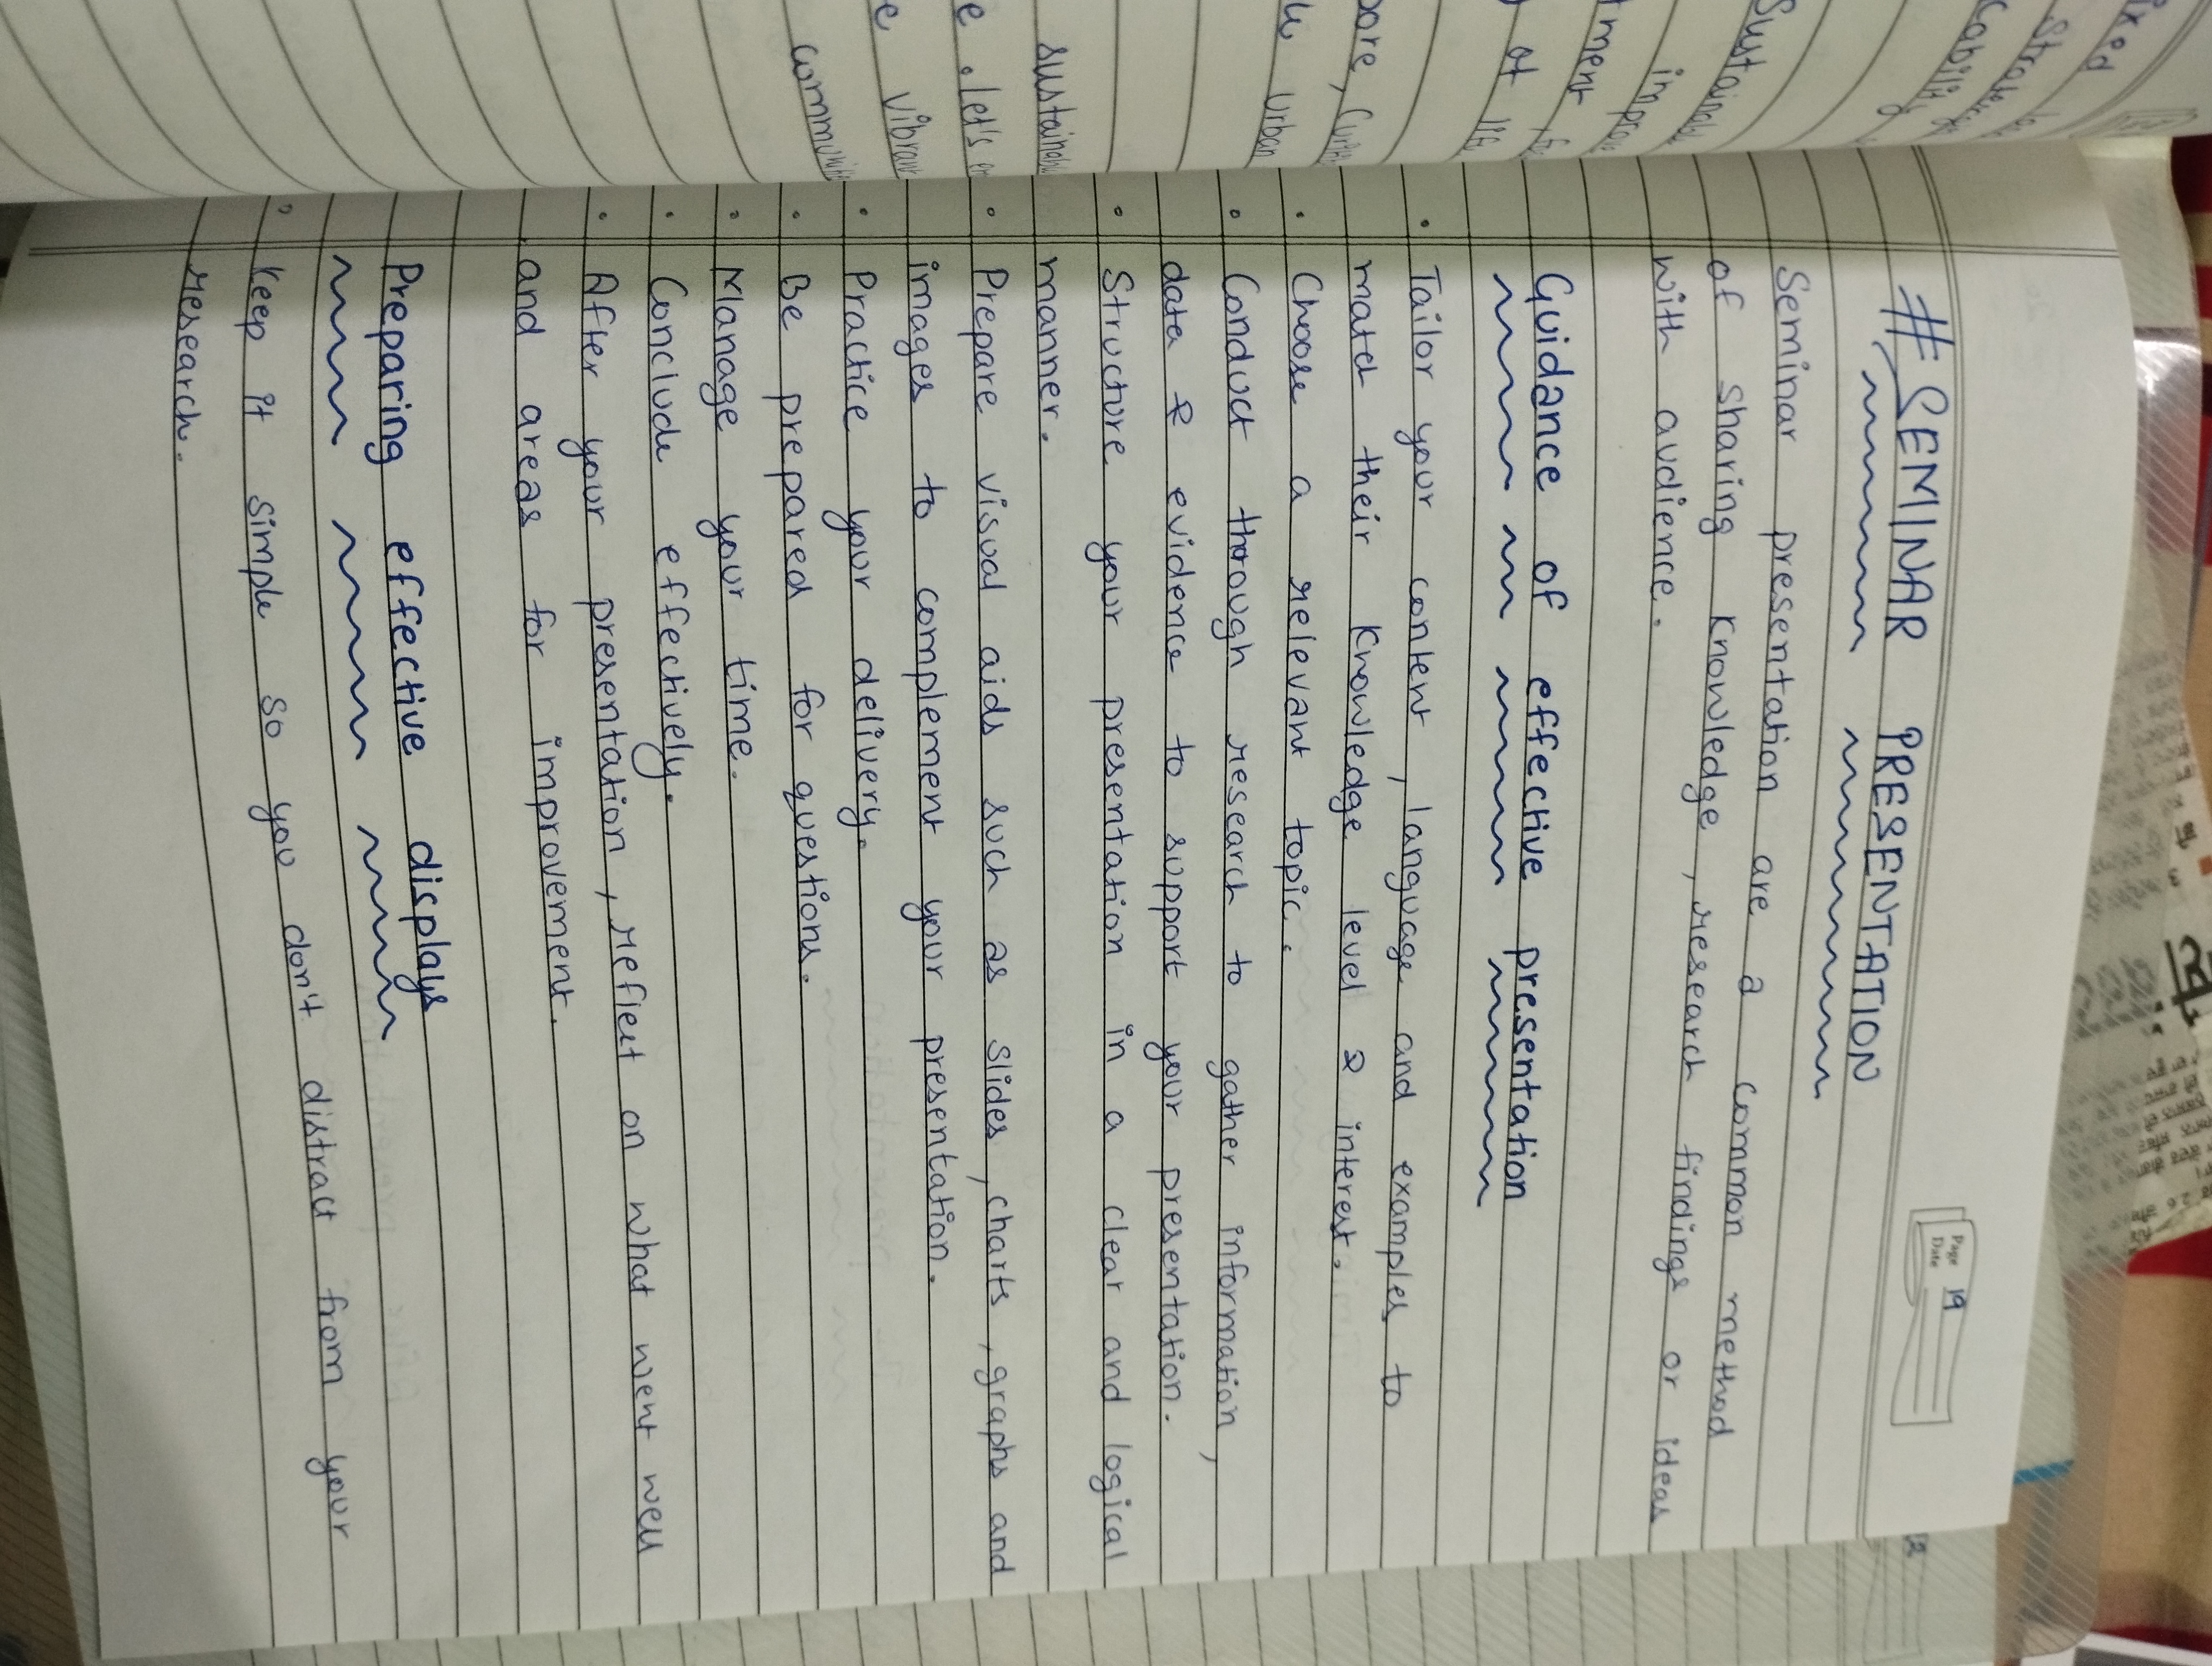 Page 19
Date
# SEMINAR PRESENTATION
Seminar presentation are a common method
of sharing knowledge, research findings or ideas
with audience.
Guidance of effective presentation
• Tailor your content, language and examples to
match their knowledge level & interest.
• Choose a relevant topic.
• Conduct thorough research to gather information,
data & evidence to support your presentation.
• Structure your presentation in a clear and logical
manner.
• Prepare visual aids such as slides, charts, graphs and
images to complement your presentation.
• Practice your delivery.
• Be prepared for questions.
• Manage your time.
• Conclude effectively.
• After your presentation, reflect on what went well
and areas for improvement.
Preparing effective displays
• Keep it simple so you don't distract from your
research.
sustainable
let's
vibrant
urban
of life